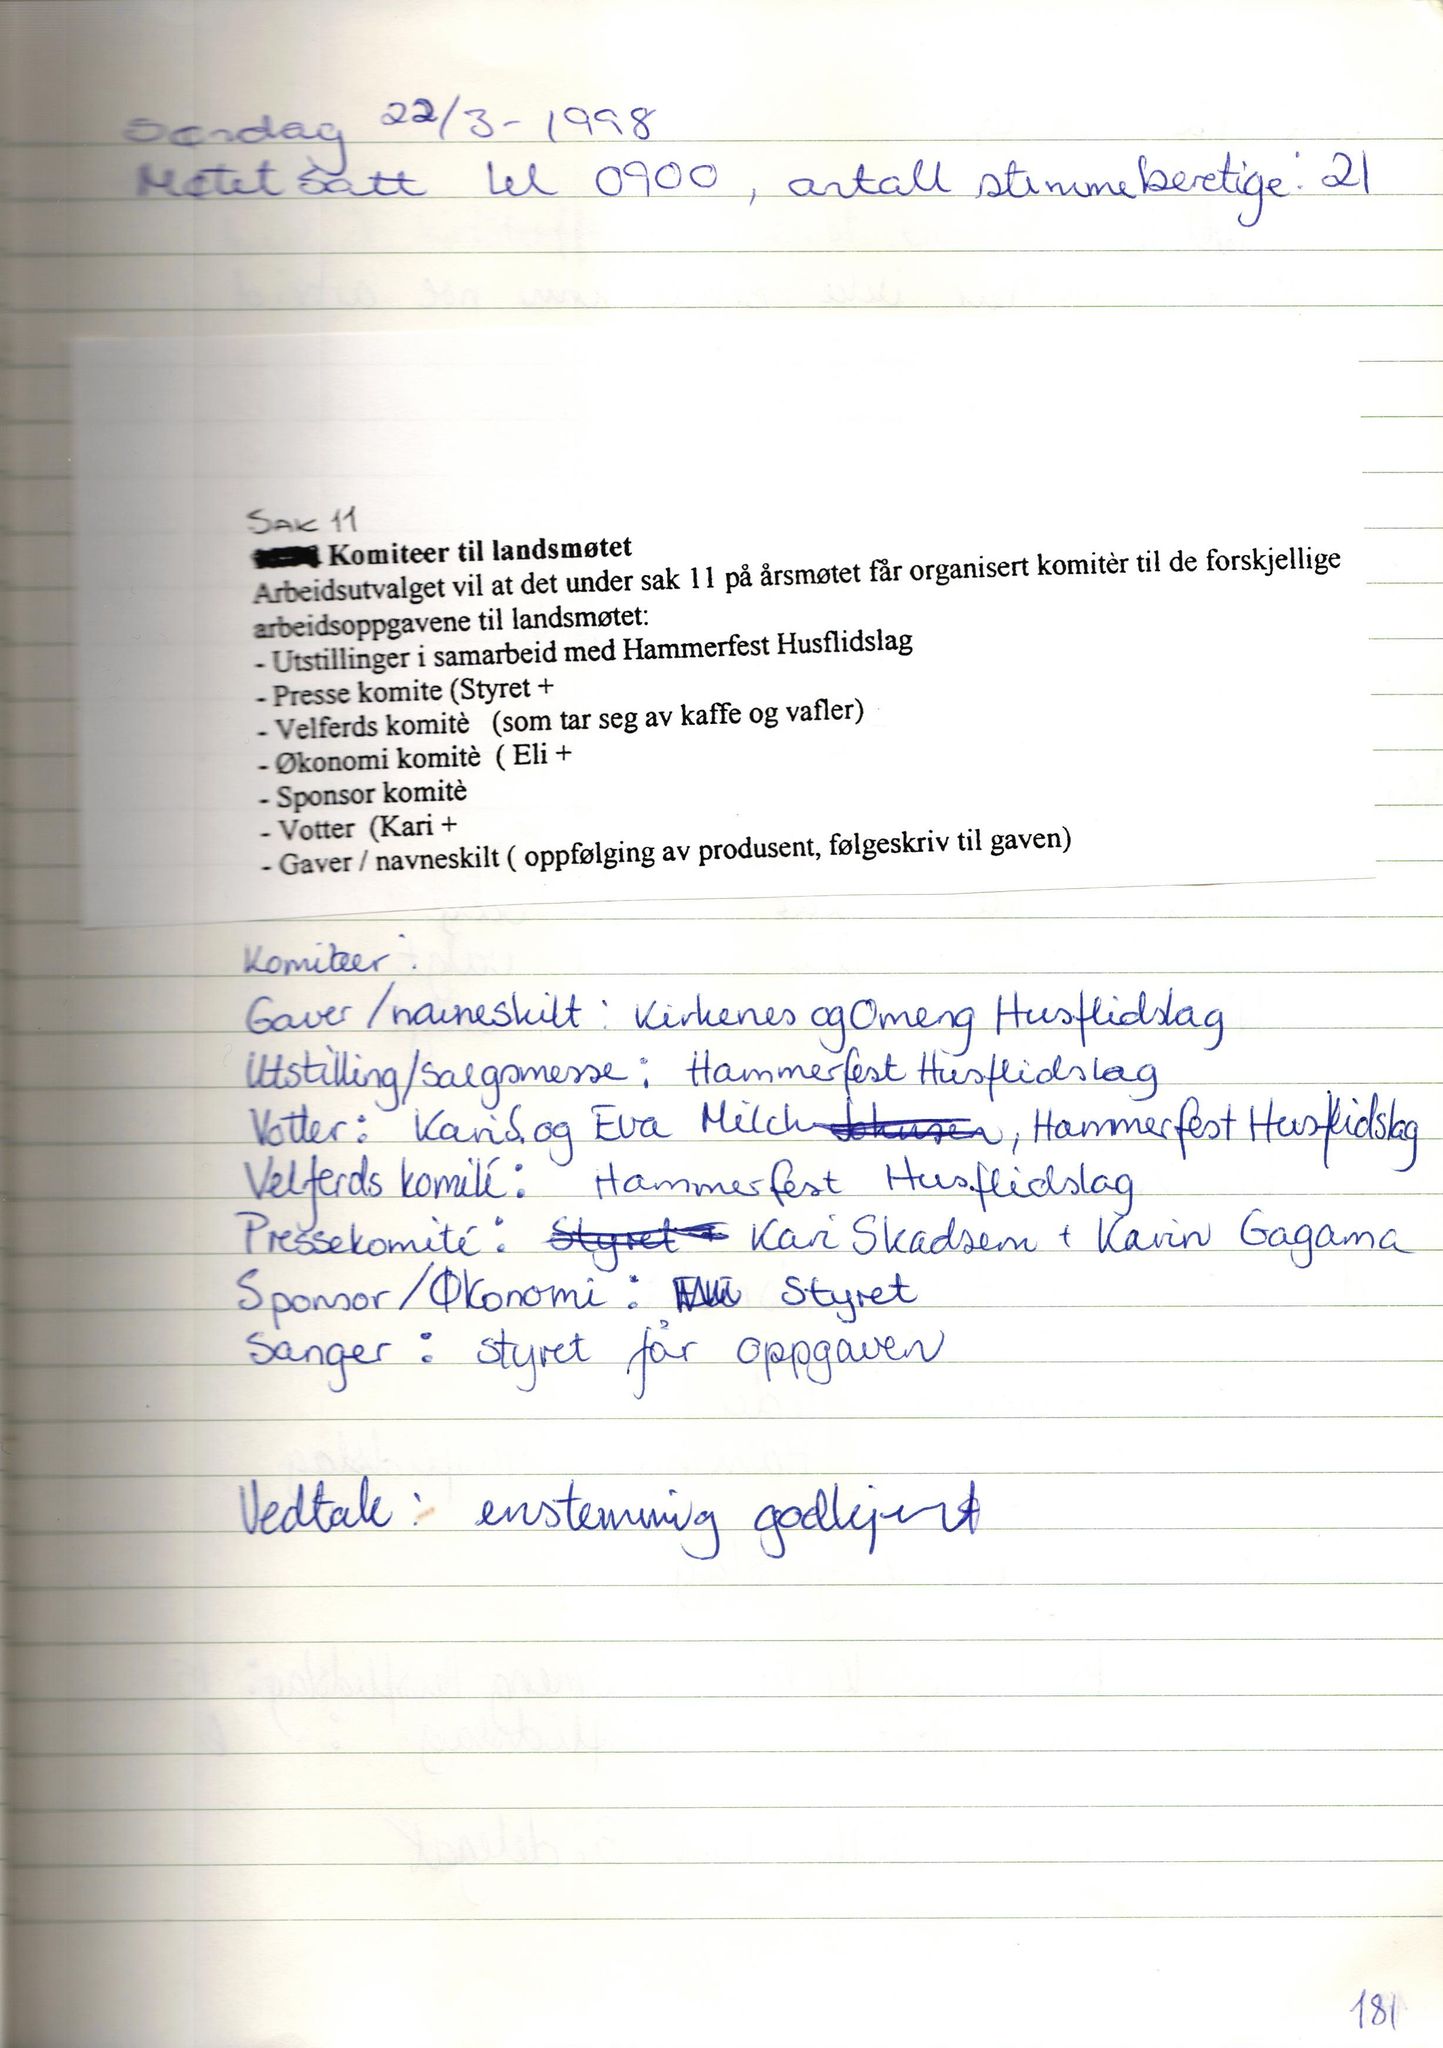 Søndag 22/3-1998
Møtet satt kl 0900, antall stemmeberetige: 21
SAK 11
Komiteer til landsmøtet
Arbeidsutvalget vil at det under sak 11 på årsmøtet får organisert komitèr til de forskjellige
arbeidsoppgavene til landsmøtet:
- Utstillinger i samarbeid med Hammerfest Husflidslag
- Presse komite (Styret +
- Velferds komitè (som tar seg av kaffe og vafler)
- Økonomi komitè ( Eli +
- Sponsor komitè
- Votter (Kari +
- Gaver / navneskilt ( oppfølging av produsent, følgeskriv til gaven)
Komiteer:
Gaver/navneskilt: Kirkenes og Omeng Husflidslag
Utstilling/salgsmesse: Hammerfest Husflidslag
Votter: Kari S. og Eva Milch Johnsen, Hammerfest Husflidslag
Velferds komité: Hammerfest Husflidslag
Pressekomité: Styret + Kari Skadsem + Karin Gagama
Sponsor/Økonomi: Styret
Sanger: styret får oppgaven
Vedtak: enstemmig godkjent
181